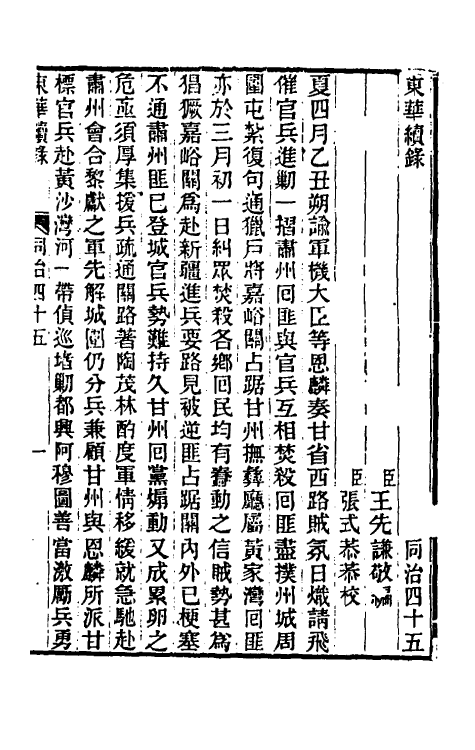 東華續錄 同治四十五
臣王先謙敬編
臣張式恭恭校
夏四月乙丑朔諭軍機大臣等恩麟奏甘省西路賊氛日熾請飛
催官兵進勦一摺肅州回匪與官兵互相焚殺回匪盡撲州城周
圍屯紮復句通獵戶將嘉峪關占踞甘州撫彝廳屬黃家灣回匪
亦於三月初一日糾眾焚殺各鄉回民均有蠢動之信賊勢甚為
猖獗嘉峪關為赴新疆進兵要路見被逆匪占踞關內外已梗塞
不通肅州匪已登城官兵勢難持久甘州回黨煽動又成累卵之
危亟須厚集援兵疏通關路著陶茂林酌度軍情移緩就急馳赴
肅州會合黎獻之軍先解城圍仍分兵兼顧甘州與恩麟所派甘
標官兵赴黃沙灣河一帶偵巡堵勦都興阿穆圖善當激勵兵勇
東華續錄 同治四十五 一